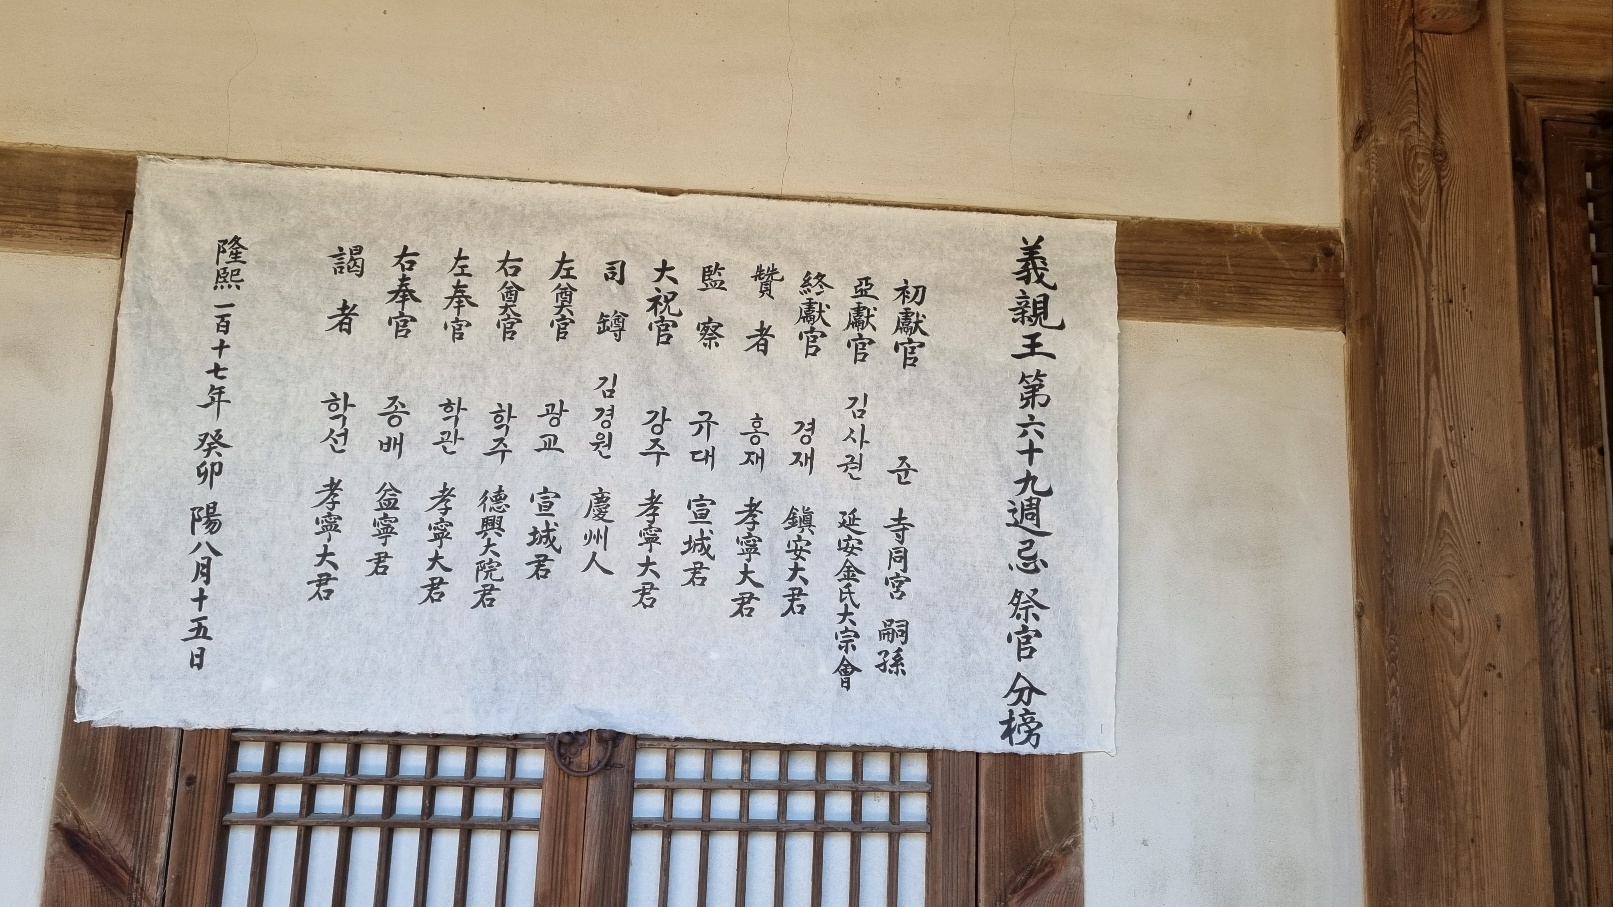 義親王 第六十九週忌 祭官 分榜
初獻官 준 寺同宮 嗣孫
亞獻官 김사권 延安金氏大宗會
終獻官 경재 鎭安大君
贊者 홍재 孝寧大君
監察 규대 宣城君
大祝官 강주 孝寧大君
司罇 김경원 慶州人
左奠官 광교 宣城君
右奠官 학주 德興大院君
左奉官 학관 孝寧大君
右奉官 종배 益寧君
謁者 학선 孝寧大君
隆熙 一百十七年 癸卯 陽八月十五日